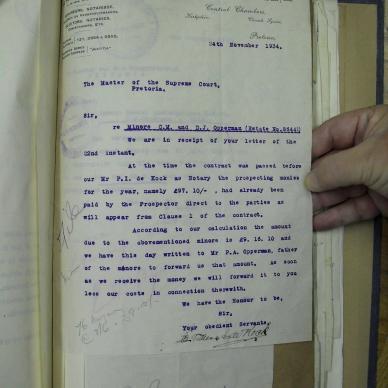 NOTARIES,
Central Chambers,
Church Square,
Pretoria
24th November 1934.
The Master of the Supreme Court,
Pretoria.
Sir,
re Minors C.M. and D.J. Opperman (Estate No.
We are in receipt of your letter of the
22nd instant.
At the time the contract was passed before
our Mr P.I. de Kock as Notary the prospecting monies
for the year, namely £97. 10/- , had already been
paid by the Prospector direct to the parties as
will appear from Clause 1 of the contract.
According to our calculation the amount
due to the abovementioned minors is £9. 15. 10 and
we have this day written to Mr P.A. Opperman, father
of the minors to forward us that amount. As soon
as we receive the money we will forward it to you
less our costs in connection therewith.
We have the Honour to be,
Sir,
Your obedient Servants,